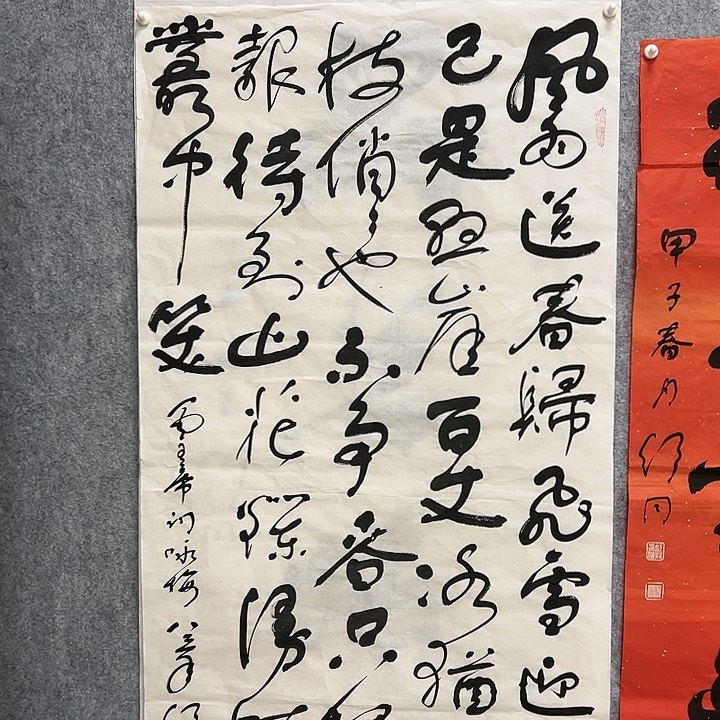 風雨送春歸飛雪迎
已是懸崖百丈冰猶
枝俏〻也不爭春只
報待到山花爛漫時
叢中笑
毛主席詞咏梅
甲子春月舒同